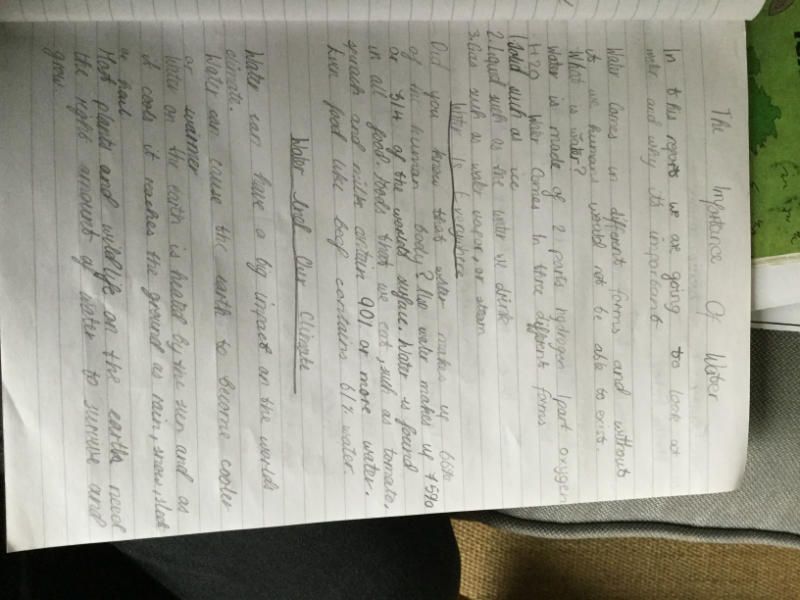 The Importance Of Water
In this reports we are going to look at
water and why its important
Water Comes in different forms and without
it we humans would not be able to exist.
What is water?
Water is made of 2 parts hydrogen 1part oxygen
H20 Water Comes In three different forms
1. Solid such as ice
2. Liquid such as the water we drink
3. Gas such as water vapor, or steam
Water Is Everywhere
Did you know that water makes up 66%
of the human body? Also water makes up 75%
or 3/4 of the worlds surface. Water is found
in all food foods that we eat, such as tomato,
spinach and milk contain 90% or more water.
Even food like beef contains 61% water.
Water And Our Climate
Water can have a big impact on the worlds
climate.
Water can cause the earth to become cooler
or warmer
Water on the earth is heated by the sun and as
it cools it reaches the ground as rain, snow, sleet
or hail
Most plants and wildlife on the earth need
the right amount of water to survive and
grow